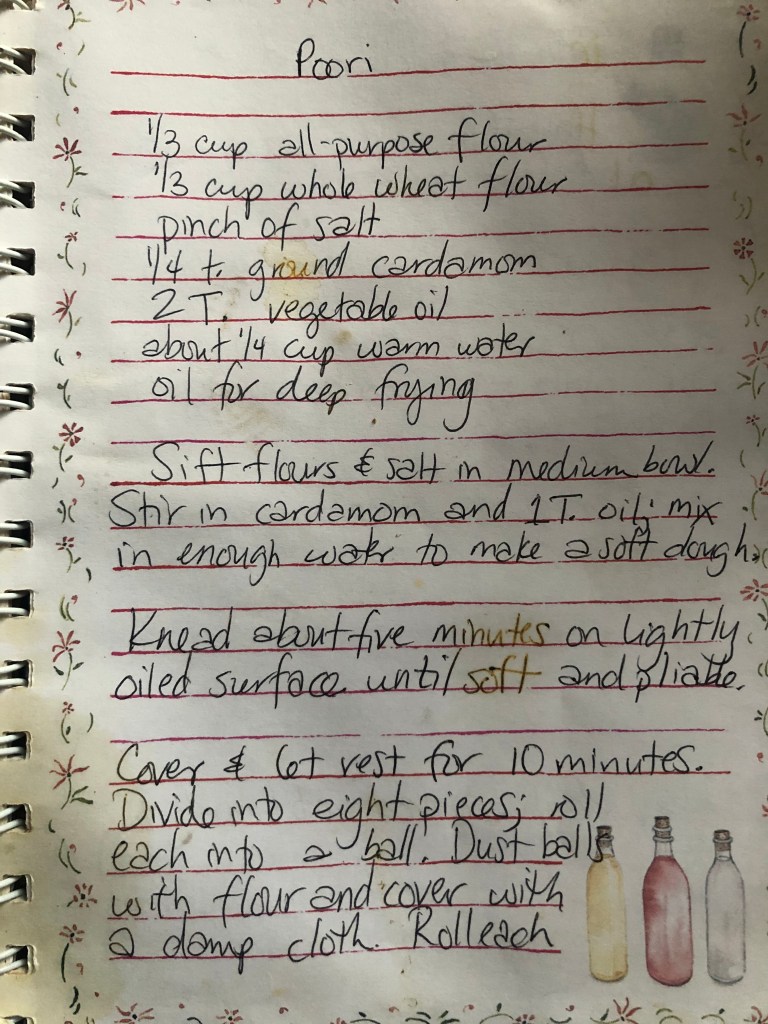 Poori
1/3 cup all-purpose flour
1/3 cup whole wheat flour
pinch of salt
1/4 t. ground cardamom
2 T. vegetable oil
about 1/4 cup warm water
oil for deep frying
Sift flours & salt in medium bowl.
Stir in cardamom and 1 T. oil; mix
in enough water to make a soft dough.
Knead about five minutes on lightly
oiled surface until soft and pliable.
Cover & let rest for 10 minutes.
Divide into eight pieces; roll
each into a ball. Dust balls
with flour and cover with
a damp cloth. Roll each